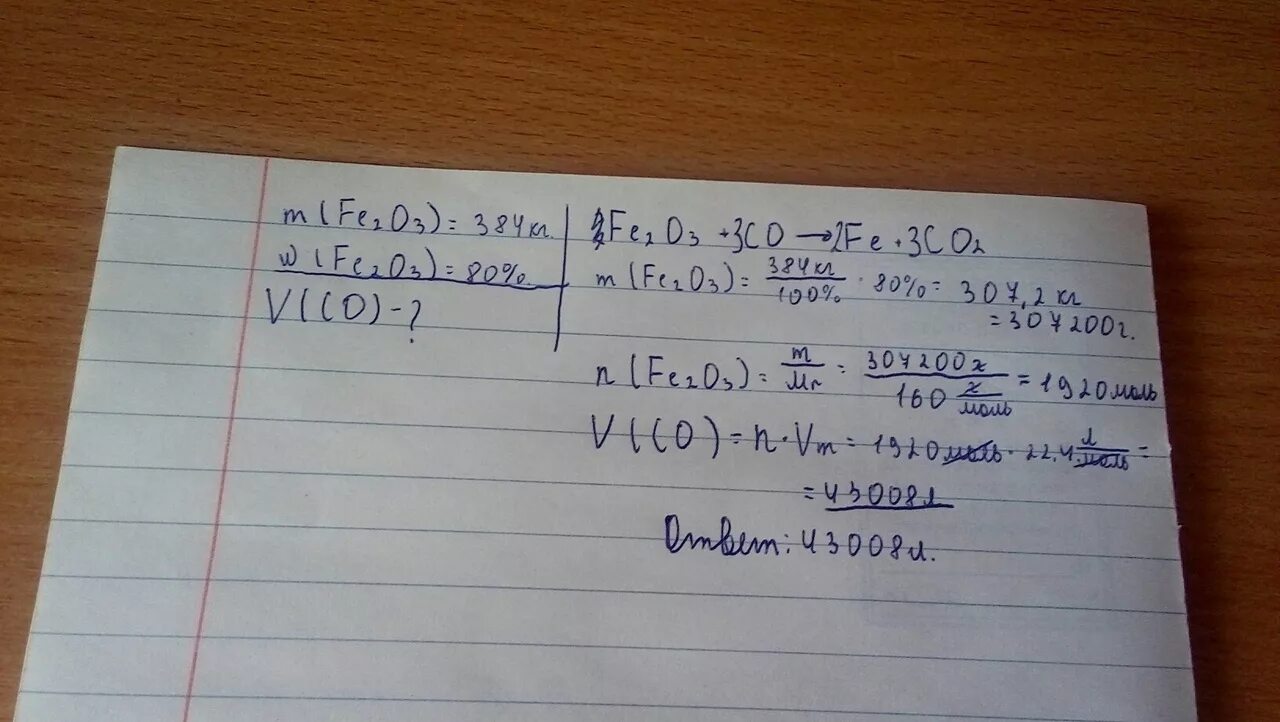 m(Fe₂O₃) = 384кг
w(Fe₂O₃) = 80%
V(CO) - ?
Fe₂O₃ + 3CO → 2Fe + 3CO₂
m(Fe₂O₃) = 384кг/100% · 80% = 307,2 кг
= 307200г.
n(Fe₂O₃) = m/Mr = 307200г/160 г/моль = 1920моль
V(CO) = n · Vm = 1920моль · 22,4 л/моль =
= 43008л
Ответ: 43008л.